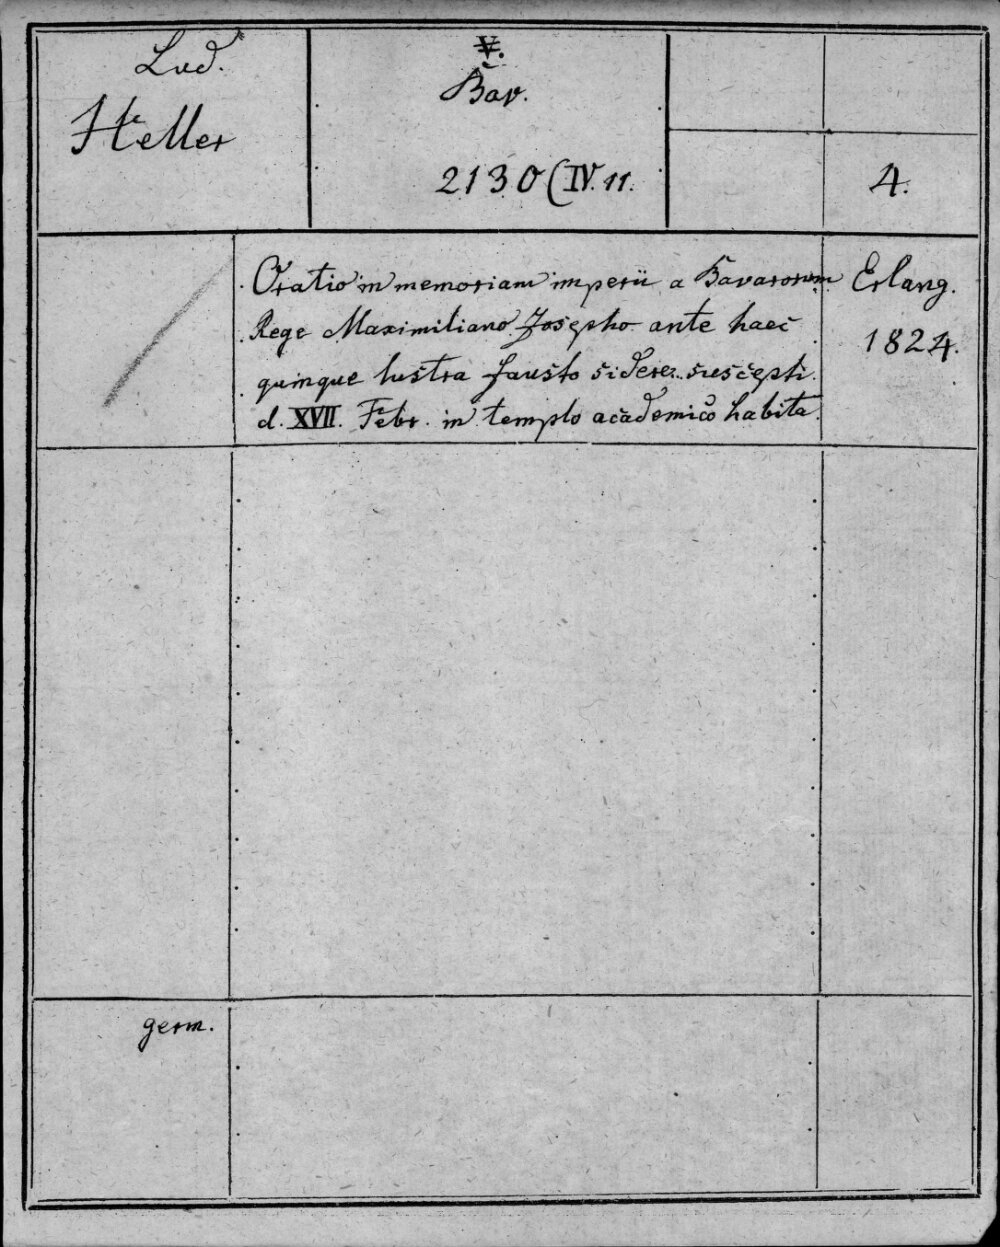 Lud.
Heller
V.
Bav.
2130(IV. 11.
4.
Oratio in memoriam imperii a Bavarorum
Rege Maximiliano Josepho ante haec
quinque lustra fausto sidere suscepti
d. XVII. Febr. in templo academico habita.
Erlang.
1824.
germ.